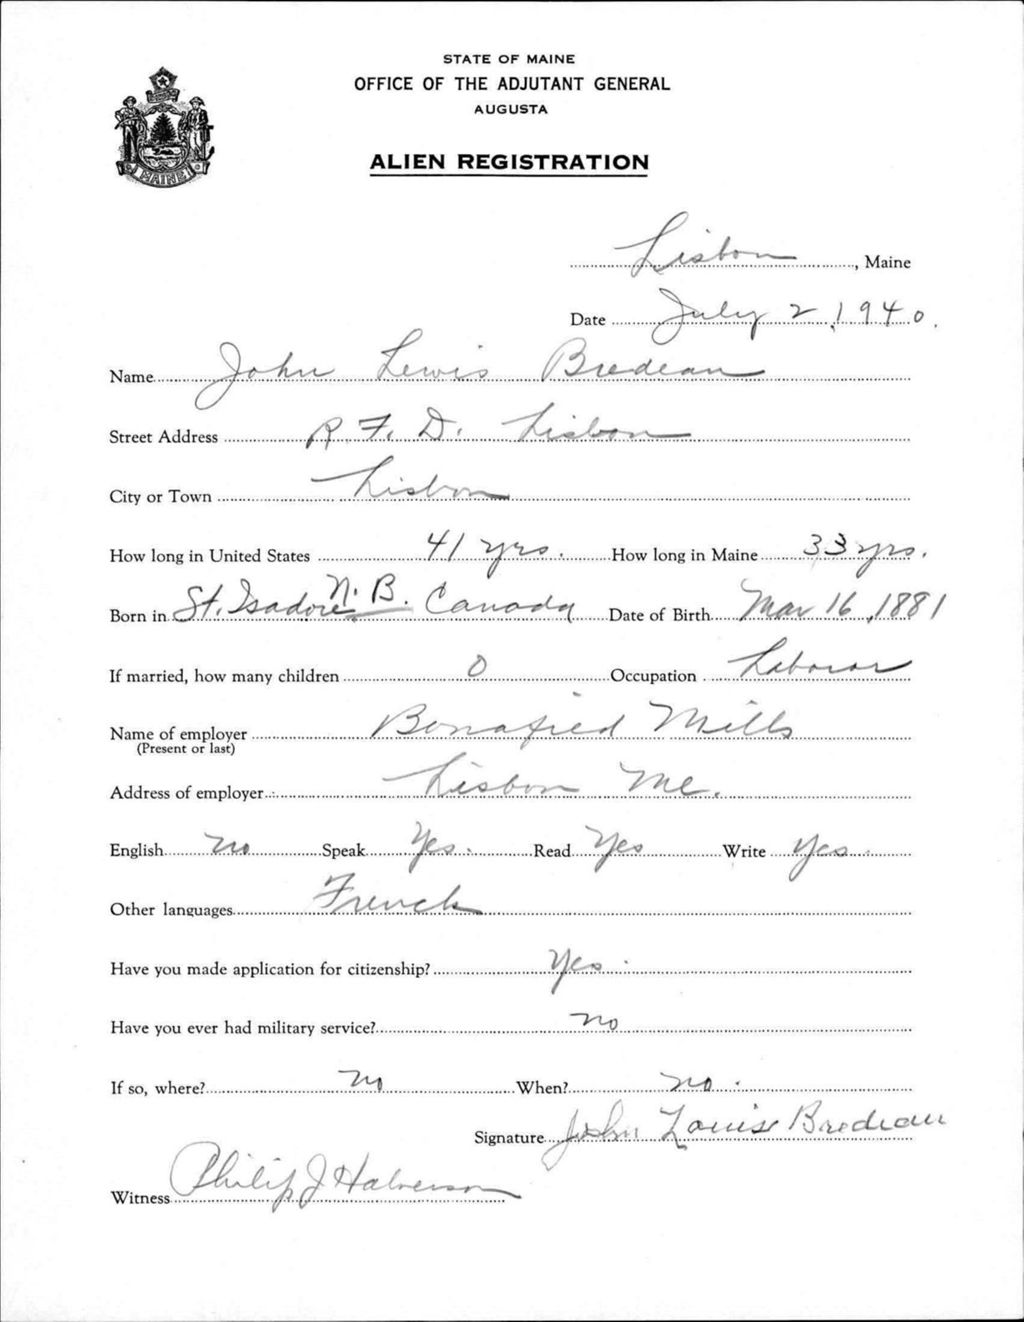 STATE OF MAINE
OFFICE OF THE ADJUTANT GENERAL
AUGUSTA
ALIEN REGISTRATION
MAINE
Lisbon, Maine
Date July 2, 1940.
Name John Lewis Bredeau
Street Address R. F. D. Lisbon
City or Town Lisbon
How long in United States 41 yrs. How long in Maine 33 yrs.
Born in St. Isadore N. B. Canada Date of Birth Mar 16, 1881
If married, how many children 0 Occupation Laboror
Name of employer Bonafied Mills
(Present or last)
Address of employer Lisbon Me.
English no Speak Yes. Read Yes Write Yes.
Other languages French
Have you made application for citizenship? Yes.
Have you ever had military service? no
If so, where? no When? no.
Signature John Louis Brodeau
Witness Philip J Halverson